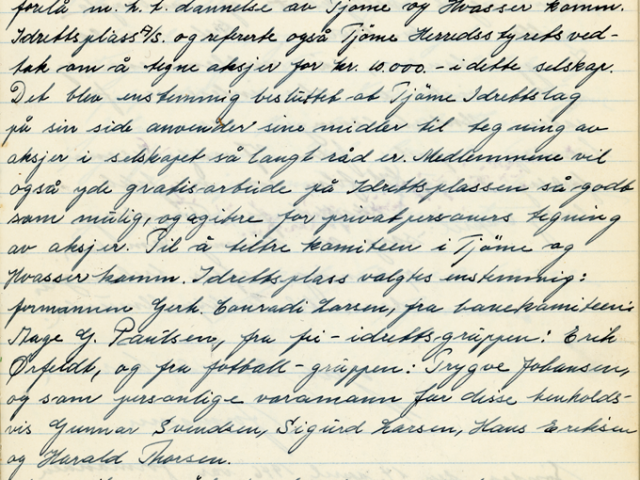 forelå m. h. t. dannelse av Tjöme og Hvasser komm.
Idrettsplass A/S. og refererte også Tjöme Herredsstyrets ved-
tak om å tegne aksjer for kr. 10.000.- i dette selskap.
Det blev enstemmig besluttet at Tjöme Idrettslag
på sin side anvender sine midler til tegning av
aksjer i selskapet så langt råd er. Medlemmene vil
også yde gratisarbeide på Idrettsplassen så godt
som mulig, og agitere for privatpersoners tegning
av aksjer. Til å tiltre komiteen i Tjöme og
Hvasser komm. Idrettsplass valgtes enstemmig:
formannen Gerh. Conradi Larsen, fra banekomiteen:
Aage G. Paulsen, fra fri-idretts-gruppen: Erik
Ørfeldt, og fra fotball-gruppen: Trygve Johansen,
og som personlige varamann for disse henholds-
vis Gunnar Svendsen, Sigurd Larsen, Hans Eriksen
og Harald Thorsen.